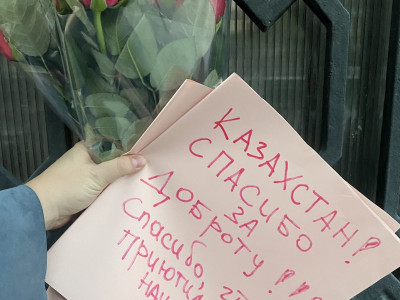 КАЗАХСТАН!
СПАСИБО
ЗА
ДОБРОТУ!!!
Спасибо,
ПРИЮТИЛ
НАШ